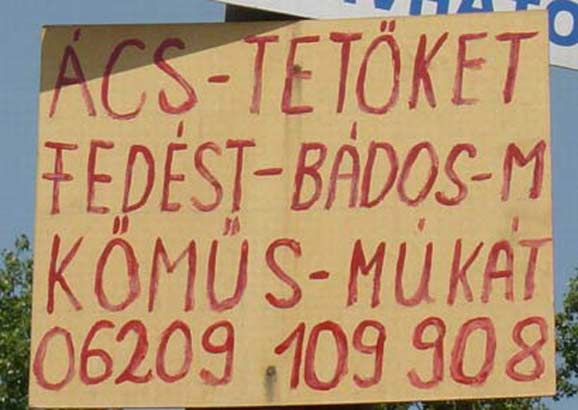 ÁCS-TETŐKET
FEDÉST-BÁDOS-M
KŐMŰS-MÚKÁT
06209 109 908